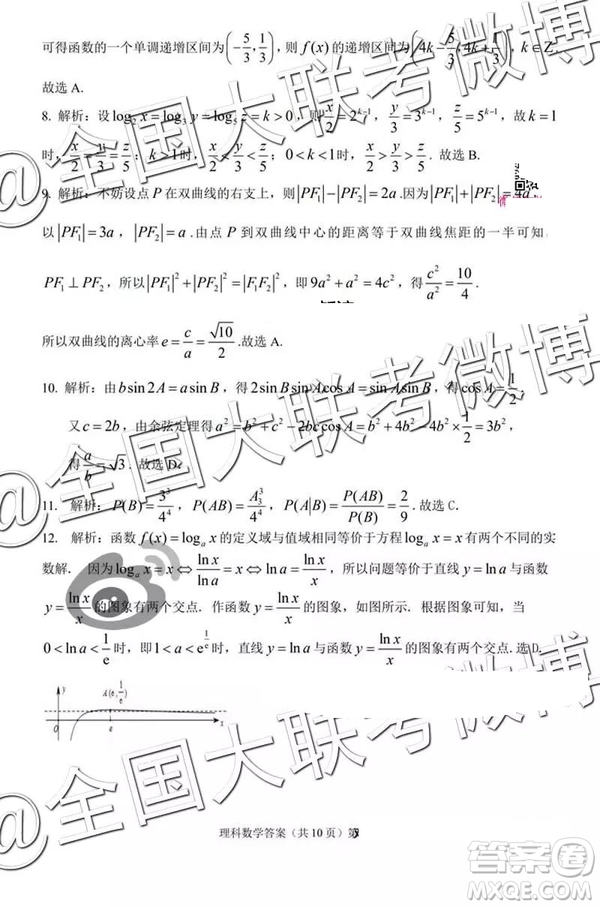 可得函数的一个单调递增区间为(-5/3, 1/3)，则 f(x) 的递增区间为(4k-5/3, 4k+1/3)，k∈Z.
故选 A.
8. 解析：设 log₂x=log₃y=log₅z=k>0，则 x/2=2^(k-1)，y/3=3^(k-1)，z/5=5^(k-1)，故 k=1
时，x/2=y/3=z/5；k>1时，x/2<y/3<z/5；0<k<1时，x/2>y/3>z/5. 故选 B.
9. 解析：不妨设点 P 在双曲线的右支上，则|PF₁|-|PF₂|=2a.因为|PF₁|+|PF₂|=4a，
以|PF₁|=3a，|PF₂|=a.由点 P 到双曲线中心的距离等于双曲线焦距的一半可知，
PF₁⊥PF₂，所以|PF₁|²+|PF₂|²=|F₁F₂|²，即 9a²+a²=4c²，得 c²/a²=10/4.
所以双曲线的离心率 e=c/a=√10/2.故选 A.
10. 解析：由 b sin 2A=a sin B，得 2sin B sin A cos A=sin A sin B，得 cos A=1/2.
又 c=2b，由余弦定理得 a²=b²+c²-2bc cos A=b²+4b²-4b²×1/2=3b²，
得 a/b=√3. 故选 D.
11. 解析：P(B)=3³/4⁴，P(AB)=A₃³/4⁴，P(A|B)=P(AB)/P(B)=2/9.故选 C.
12. 解析：函数 f(x)=logₐx 的定义域与值域相同等价于方程 logₐx=x 有两个不同的实
数解. 因为 logₐx=x⇔ln x/ln a=x⇔ln a=ln x/x，所以问题等价于直线 y=ln a 与函数
y=ln x/x 的图象有两个交点. 作函数 y=ln x/x 的图象，如图所示. 根据图象可知，当
0<ln a<1/e 时，即 1<a<e^(1/e) 时，直线 y=ln a 与函数 y=ln x/x 的图象有两个交点. 选 D.
y
A(e, 1/e)
O
e
x
理科数学答案（共 10 页）第
@全国大联考微博
答案圈
MXQE.COM